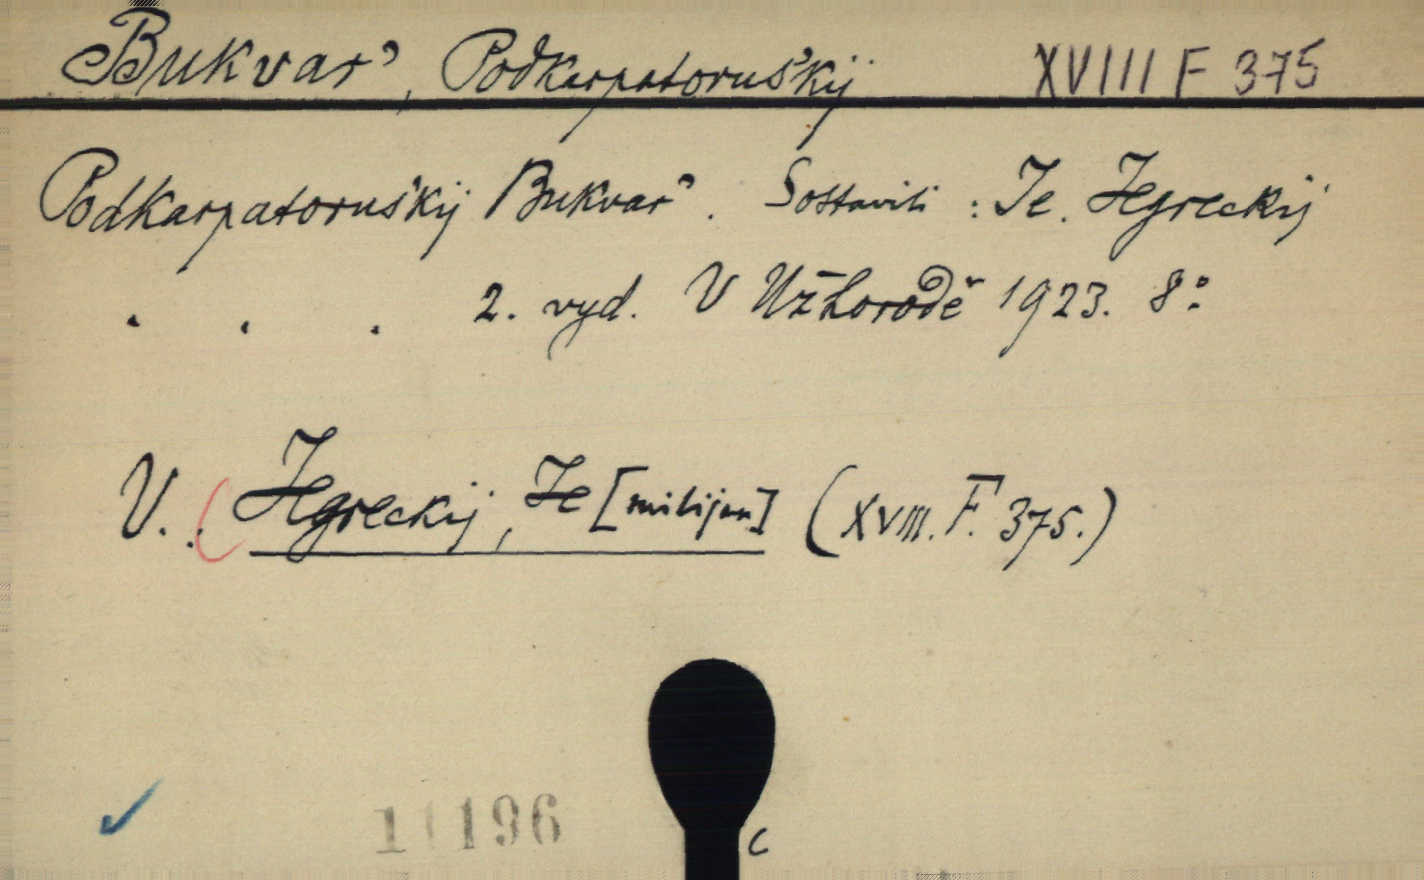 Bukvar', Podkarpatorus'kij XVIII F 375
Podkarpatorus'kij Bukvar'. Sostavili: Je. Jegreckij
. . . 2. vyd. V Užhorodě 1923. 8°
V. : Jegreckij, Je [milijan] (XVIII. F. 375.)
196
c